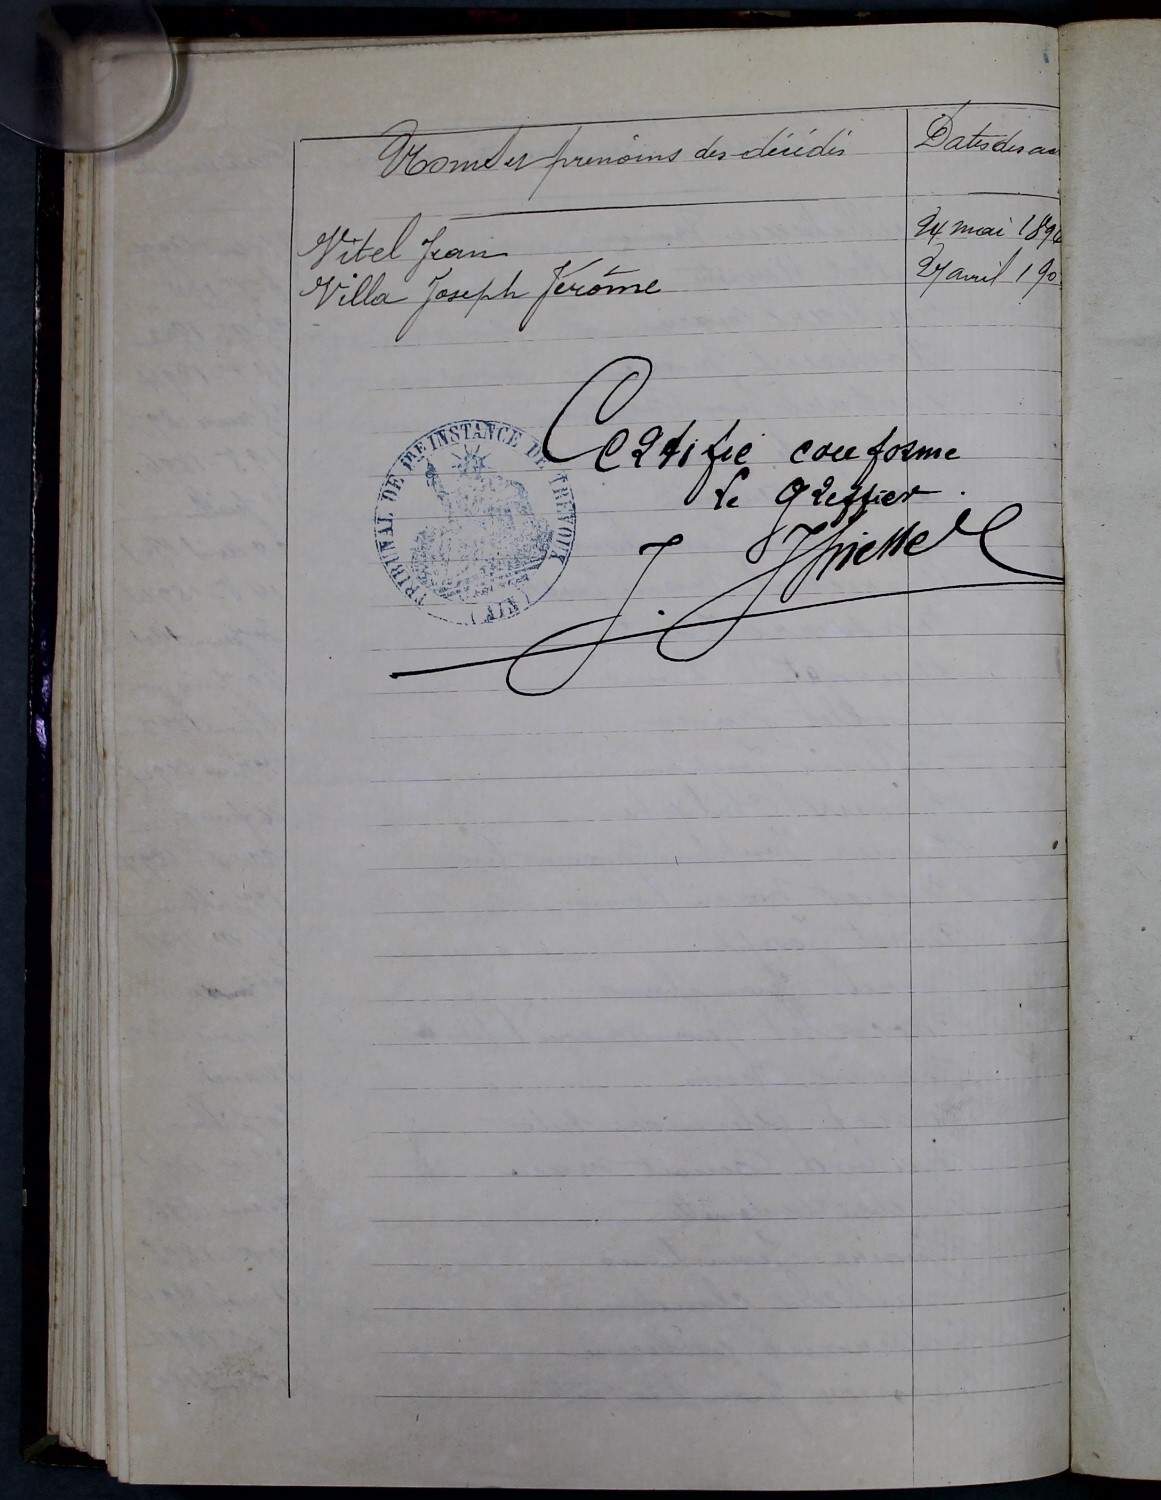 Noms et prénoms des décédés Dates des ac
Vitel Jean 24 mai 1894
Villa Joseph Jérôme 27 avril 190
TRIBUNAL DE 1RE INSTANCE DE TRÉVOUX (AIN)
Certifié conforme
Le Greffier
J.